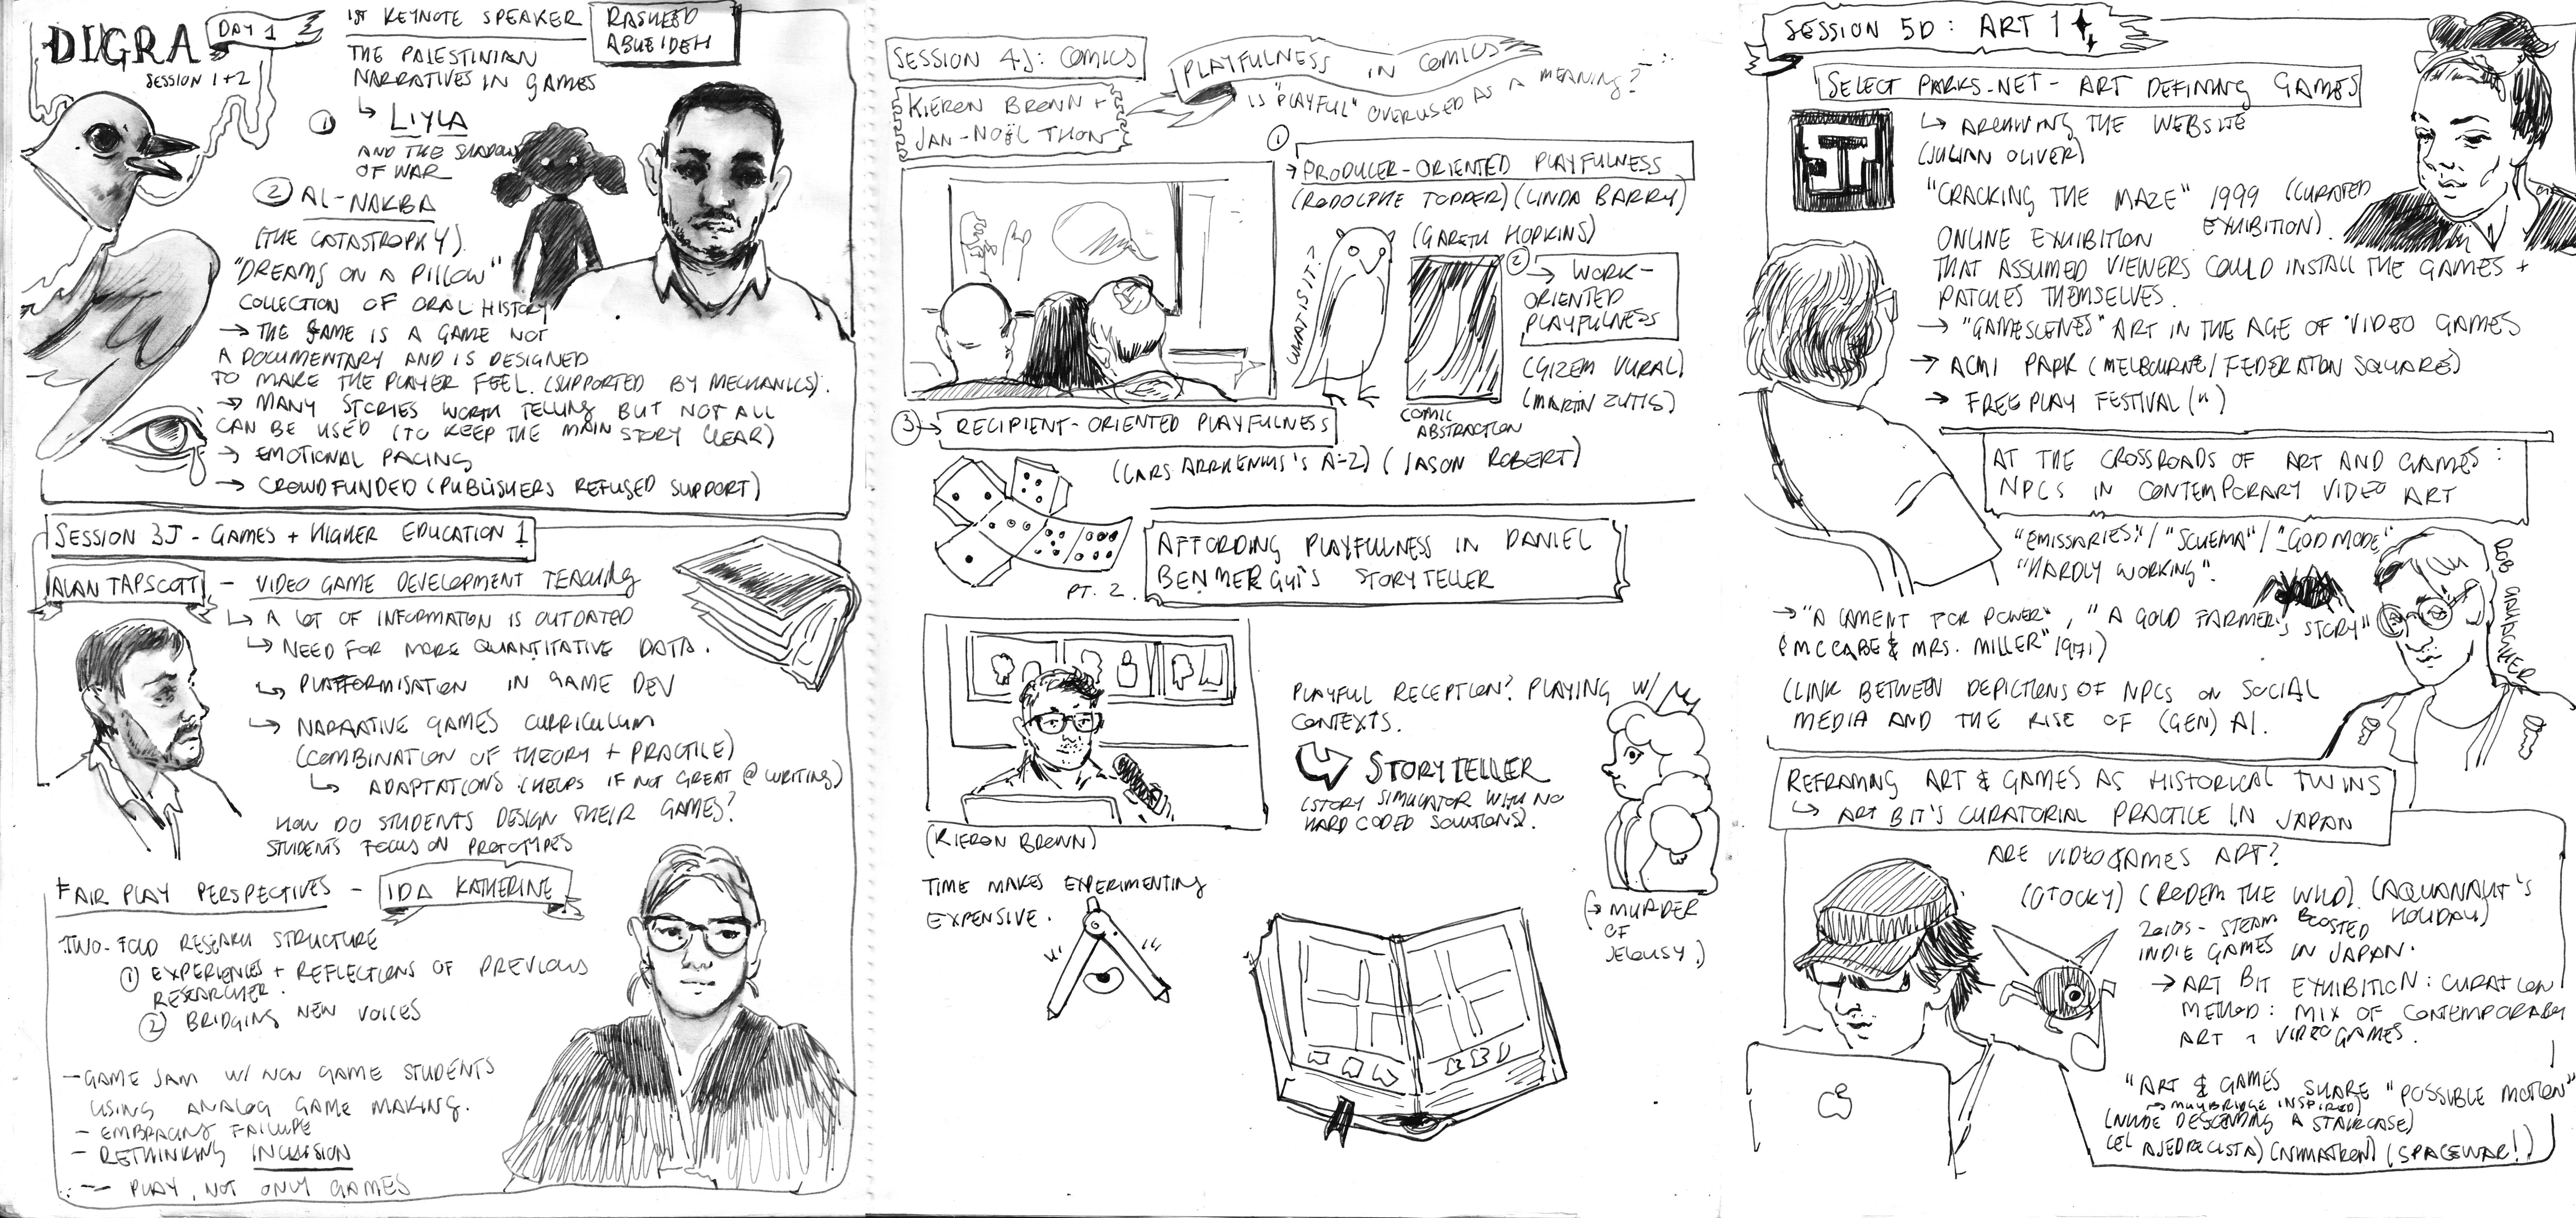 DIGRA
DAY 1
SESSION 1+2
1ST KEYNOTE SPEAKER
RASHEED
ABUEIDEH
THE PALESTINIAN
NARRATIVES IN GAMES
① ↳ LIYLA
AND THE SHADOWS
OF WAR
② AL-NAKBA
(THE CATASTROPHY).
"DREAMS ON A PILLOW"
COLLECTION OF ORAL HISTORY
→ THE GAME IS A GAME NOT
A DOCUMENTARY AND IS DESIGNED
TO MAKE THE PLAYER FEEL. (SUPPORTED BY MECHANICS).
→ MANY STORIES WORTH TELLING BUT NOT ALL
CAN BE USED (TO KEEP THE MAIN STORY CLEAR)
→ EMOTIONAL PACING
→ CROWDFUNDED (PUBLISHERS REFUSED SUPPORT)
SESSION 3J - GAMES + HIGHER EDUCATION 1
ALAN TAPSCOTT - VIDEO GAME DEVELOPMENT TEACHING
↳ A LOT OF INFORMATION IS OUTDATED
↳ NEED FOR MORE QUANTITATIVE DATA.
↳ PLATFORMISATION IN GAME DEV
↳ NARRATIVE GAMES CURRICULUM
(COMBINATION OF THEORY + PRACTICE)
↳ ADAPTATIONS (HELPS IF NOT GREAT @ WRITING)
HOW DO STUDENTS DESIGN THEIR GAMES?
STUDENTS FOCUS ON PROTOTYPES
FAIR PLAY PERSPECTIVES - IDA KATHERINE
TWO-FOLD RESEARCH STRUCTURE
① EXPERIENCES + REFLECTIONS OF PREVIOUS
RESEARCHER.
② BRIDGING NEW VOICES
- GAME JAM W/ NON GAME STUDENTS
USING ANALOG GAME MAKING.
- EMBRACING FAILURE
- RETHINKING INCLUSION
- PLAY, NOT ONLY GAMES
SESSION 4J: COMICS
KIERON BROWN +
JAN-NOËL THON
PLAYFULNESS IN COMICS
IS "PLAYFUL" OVERUSED AS A MEANING?
①
→ PRODUCER-ORIENTED PLAYFULNESS
(RODOLPHE TOPPER) (LINDA BARRY)
(GARETH HOPKINS)
WHAT IS IT?
② → WORK-
ORIENTED
PLAYFULNESS
(GIZEM VURAL)
(MARTIN ZUTIS)
COMIC
ABSTRACTION
③ → RECIPIENT-ORIENTED PLAYFULNESS
(LARS ARRHENIUS'S A-Z) (JASON ROBERT)
PT. 2.
AFFORDING PLAYFULNESS IN DANIEL
BENMERGUI'S STORYTELLER
(KIERON BROWN)
PLAYFUL RECEPTION? PLAYING W/
CONTEXTS.
STORYTELLER
(STORY SIMULATOR WITH NO
HARD CODED SOLUTIONS).
TIME MAKES EXPERIMENTING
EXPENSIVE.
(→ MURDER
OF
JELOUSY.)
SESSION 5D: ART 1
SELECT PARKS.NET - ART DEFINING GAMES
↳ ARCHIVING THE WEBSITE
(JULIAN OLIVER)
"CRACKING THE MAZE" 1999 (CURATED
EXHIBITION).
ONLINE EXHIBITION
THAT ASSUMED VIEWERS COULD INSTALL THE GAMES +
PATCHES THEMSELVES.
→ "GAMESCENES" ART IN THE AGE OF VIDEO GAMES
→ ACMI PARK (MELBOURNE/FEDERATION SQUARE)
→ FREEPLAY FESTIVAL (")
AT THE CROSSROADS OF ART AND GAMES:
NPCS IN CONTEMPORARY VIDEO ART
"EMISSARIES"/ "SCHEMA"/ "GOD MODE"
"HARDLY WORKING".
ROB GALLAGHER
→ "A LAMENT FOR POWER", "A GOLD FARMER'S STORY"
(MCCABE & MRS. MILLER" 1971)
(LINK BETWEEN DEPICTIONS OF NPCS ON SOCIAL
MEDIA AND THE RISE OF (GEN) AI.
REFRAMING ART & GAMES AS HISTORICAL TWINS
↳ ART BIT'S CURATORIAL PRACTICE IN JAPAN
ARE VIDEOGAMES ART?
(OTOCKY) (RODEM THE WILD) (AQUANAUT'S
HOLIDAY)
2010S - STEAM BOOSTED
INDIE GAMES IN JAPAN.
→ ART BIT EXHIBITION: CURATION
METHOD: MIX OF CONTEMPORARY
ART + VIDEOGAMES.
"ART & GAMES SHARE "POSSIBLE MOTION"
→ MUYBRIDGE INSPIRED)
(NUDE DESCENDING A STAIRCASE)
(EL AJEDRECISTA) (NIMATRON) (SPACEWAR!)